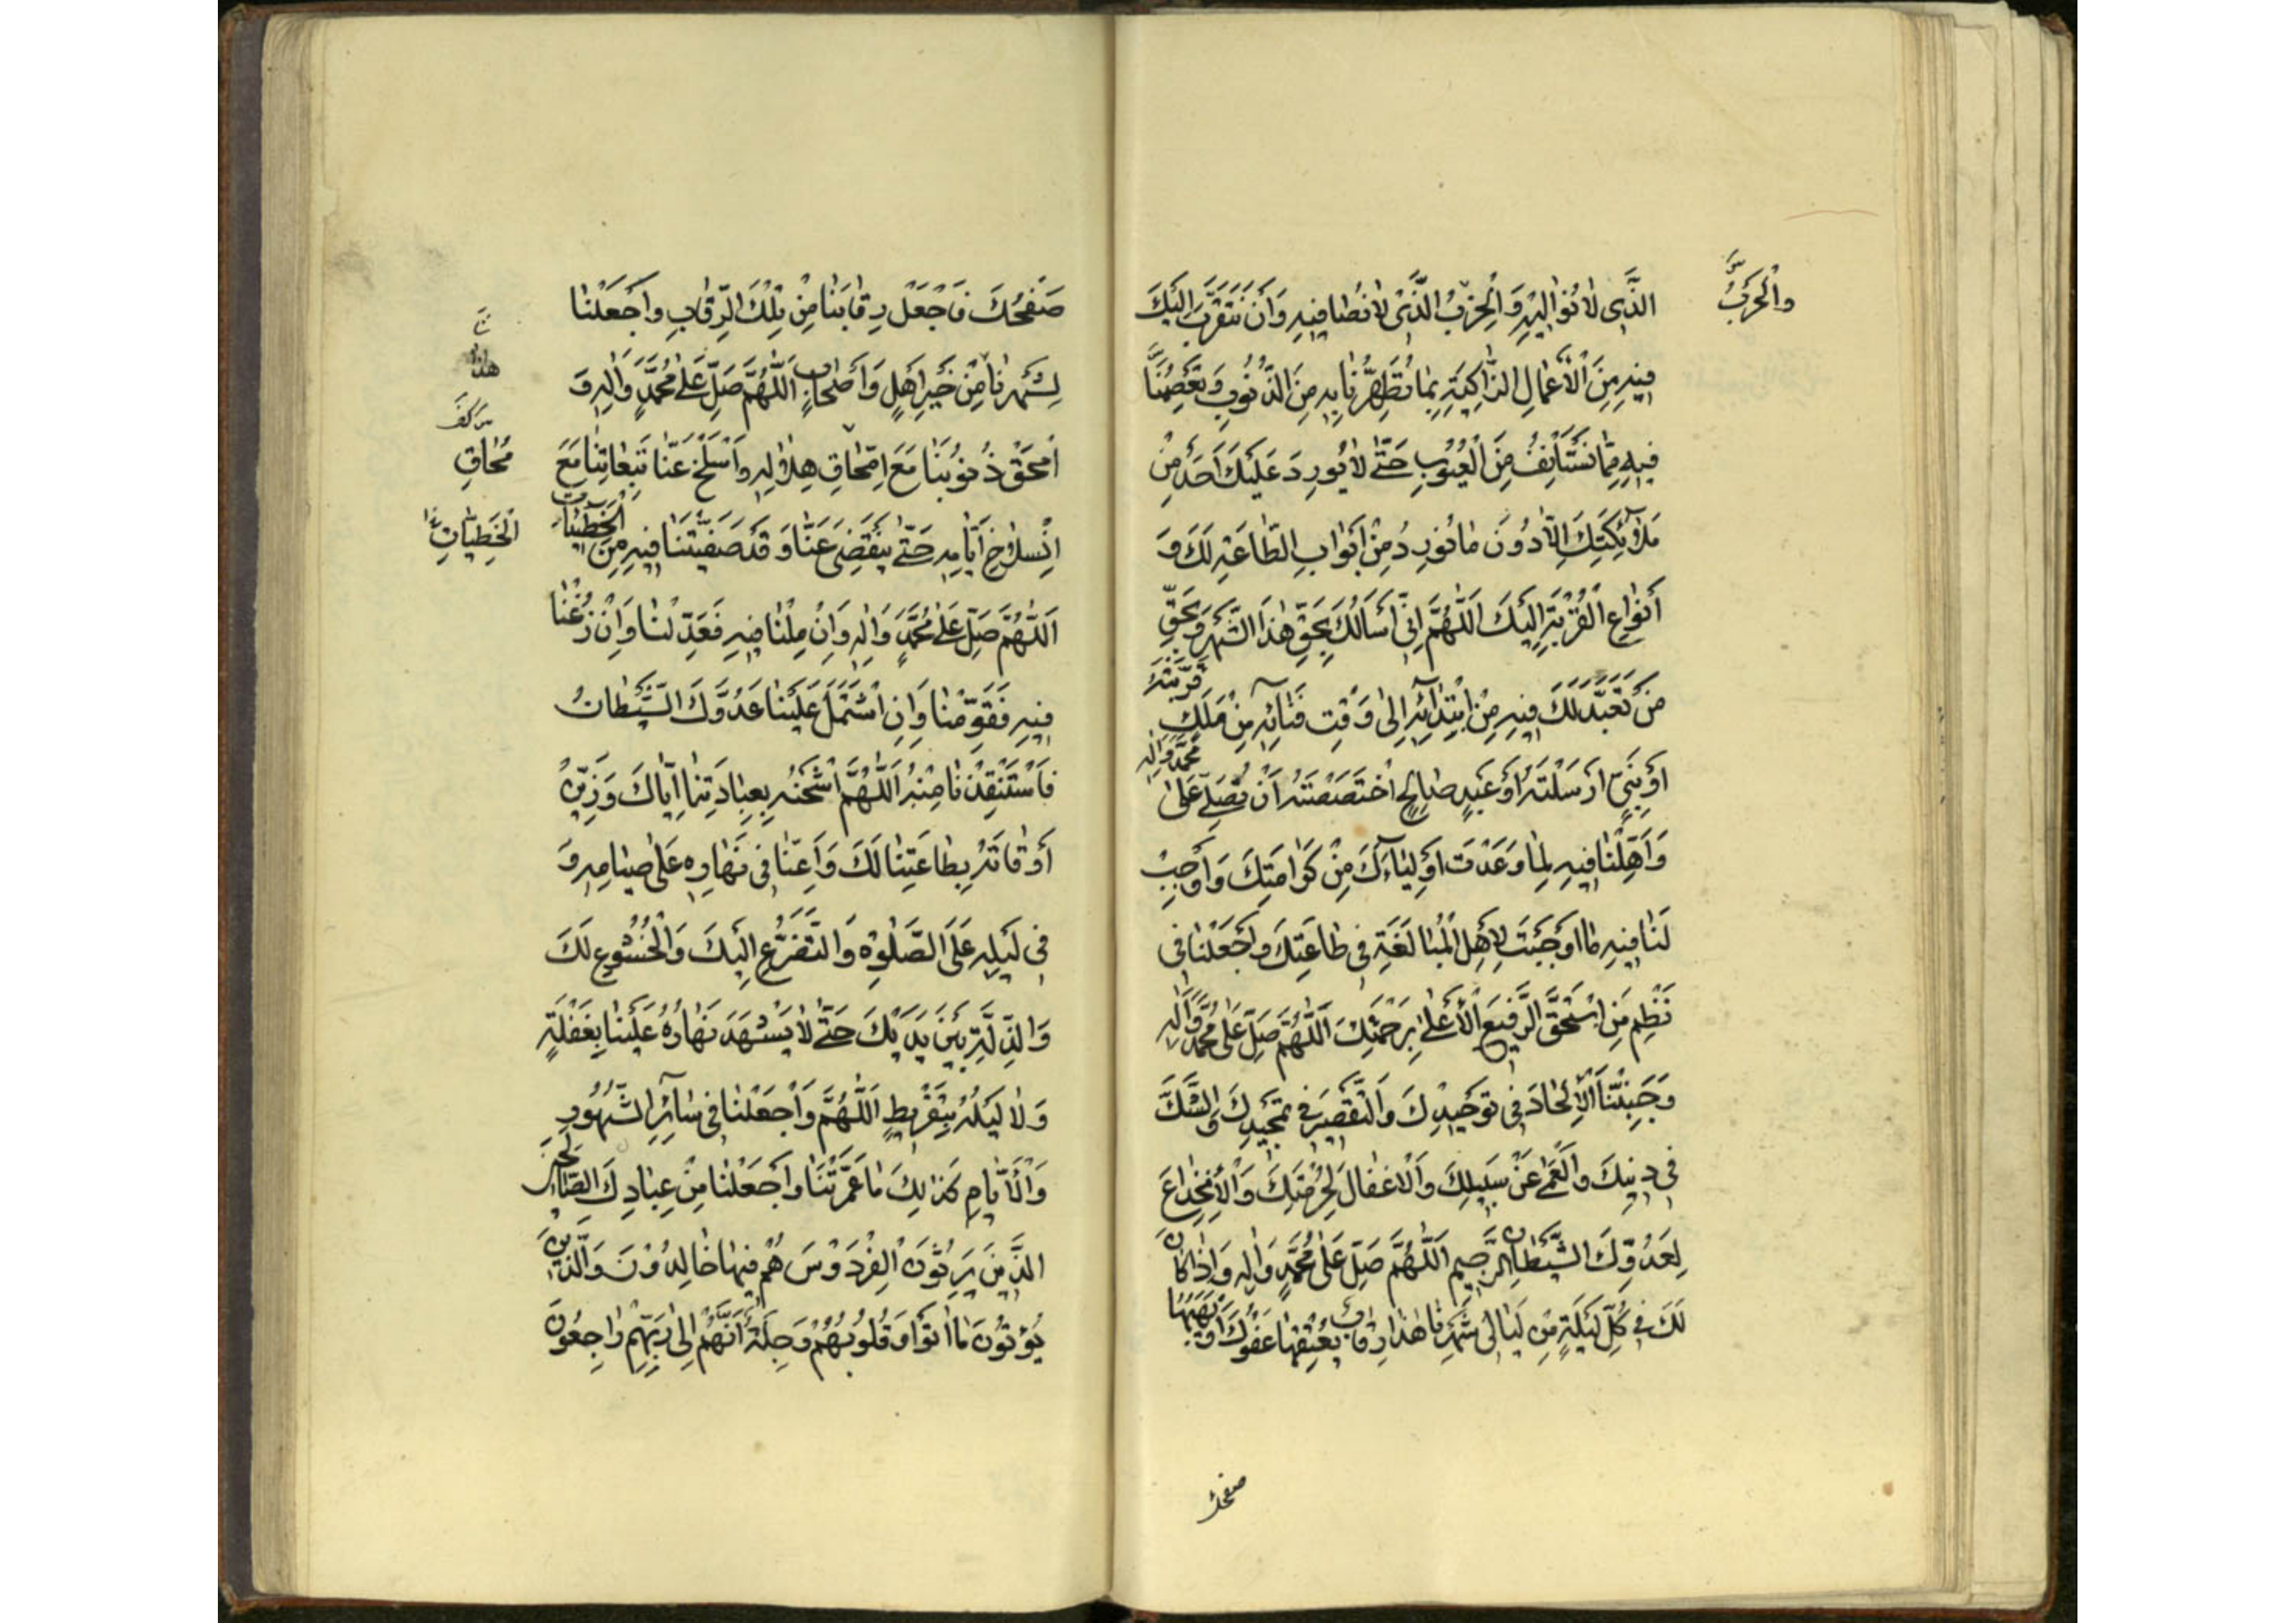 والحرب
الَّذِي لا نُوالِيهِ وَالْحِزْبُ الَّذِي لا نُصافِيهِ وَاَنْ نَتَقَرَّبَ اِلَيْكَ
فِيهِ مِنَ الْأَعْمالِ الزّاكِيَةِ بِما تُطَهِّرُنا بِهِ مِنَ الذُّنُوبِ وَتَعْصِمُنا
فِيهِ مِمّا نَسْتَأْنِفُ مِنَ الْعُيُوبِ حَتّى لا يُورِدَ عَلَيْكَ اَحَدٌ مِنْ
مَلآئِكَتِكَ اِلّا دُونَ ما نُورِدُ مِنْ اَبْوابِ الطّاعَةِ لَكَ وَ
اَنْواعِ الْقُرْبَةِ اِلَيْكَ اَللّهُمَّ اِنّي اَسْأَلُكَ بِحَقِّ هذَا الشَّهْرِ وَبِحَقِّ
مَنْ تَعَبَّدَ لَكَ فِيهِ مِنِ ابْتِدآئِهِ اِلى وَقْتِ فَنآئِهِ مِنْ مَلَكٍ قَرَّبْتَهُ
اَوْ نَبِيٍّ اَرْسَلْتَهُ اَوْ عَبْدٍ صالِحٍ اخْتَصَصْتَهُ اَنْ تُصَلِّيَ عَلى مُحَمَّدٍ وَالِهِ
وَاَهِّلْنا فِيهِ لِما وَعَدْتَ اَوْلِيآءَكَ مِنْ كَرامَتِكَ وَاَوْجِبْ
لَنا فِيهِ ما اَوْجَبْتَ لِاَهْلِ الْمُبالَغَةِ فِي طاعَتِكَ وَاجْعَلْنا فِي
نَظْمِ مَنِ اسْتَحَقَّ الرَّفِيعَ الْأَعْلى بِرَحْمَتِكَ اَللّهُمَّ صَلِّ عَلى مُحَمَّدٍ وَالِهِ
وَجَنِّبْنَا الْإِلْحادَ فِي تَوْحِيدِكَ وَالتَّقْصِيرَ فِي تَمْجِيدِكَ وَالشَّكَّ
فِي دِينِكَ وَالْعَمى عَنْ سَبِيلِكَ وَالْاِغْفالَ لِحُرْمَتِكَ وَالْاِنْخِداعَ
لِعَدُوِّكَ الشَّيْطانِ الرَّجِيمِ اَللّهُمَّ صَلِّ عَلى مُحَمَّدٍ وَالِهِ وَاِذا كانَ
لَكَ فِي كُلِّ لَيْلَةٍ مِنْ لَيالِي شَهْرِنا هذا رِقابٌ يُعْتِقُها عَفْوُكَ اَوْ يَهَبُها
صفحك
صَفْحُكَ فَاجْعَلْ رِقابَنا مِنْ تِلْكَ الرِّقابِ وَاجْعَلْنا
لِشَهْرِنا مِنْ خَيْرِ اَهْلٍ وَاَصْحابٍ اَللّهُمَّ صَلِّ عَلى مُحَمَّدٍ وَالِهِ وَ
امْحَقْ ذُنُوبَنا مَعَ امِّحاقِ هِلالِهِ وَاسْلَخْ عَنّا تَبِعاتِنا مَعَ
مُحاقِ
انْسِلاخِ اَيّامِهِ حَتّى يَنْقَضِيَ عَنّا وَقَدْ صَفَّيْتَنا فِيهِ مِنَ الْخَطِيئاتِ
الْخَطِيّاتِ
اَللّهُمَّ صَلِّ عَلى مُحَمَّدٍ وَالِهِ وَاِنْ مِلْنا فِيهِ فَعَدِّلْنا وَاِنْ زُغْنا
فِيهِ فَقَوِّمْنا وَاِنِ اشْتَمَلَ عَلَيْنا عَدُوُّكَ الشَّيْطانُ
فَاسْتَنْقِذْنا مِنْهُ اَللّهُمَّ اشْحَنْهُ بِعِبادَتِنا اِيّاكَ وَزَيِّنْ
اَوْقاتَهُ بِطاعَتِنا لَكَ وَاَعِنّا فِي نَهارِهِ عَلى صِيامِهِ وَ
فِي لَيْلِهِ عَلَى الصَّلوةِ وَالتَّضَرُّعِ اِلَيْكَ وَالْخُشُوعِ لَكَ
وَالذِّلَّةِ بَيْنَ يَدَيْكَ حَتّى لا يَشْهَدَ نَهارُهُ عَلَيْنا بِغَفْلَةٍ
وَلا لَيْلُهُ بِتَفْرِيطٍ اَللّهُمَّ وَاجْعَلْنا فِي سآئِرِ الشُّهُورِ
وَالْأَيّامِ كَذلِكَ ما عَمَّرْتَنا وَاجْعَلْنا مِنْ عِبادِكَ الصّالِحِينَ
الَّذِينَ يَرِثُونَ الْفِرْدَوْسَ هُمْ فِيها خالِدُونَ وَالَّذِينَ
يُؤْتُونَ ما اتَوْا وَقُلُوبُهُمْ وَجِلَةٌ اَنَّهُمْ اِلى رَبِّهِمْ راجِعُونَ